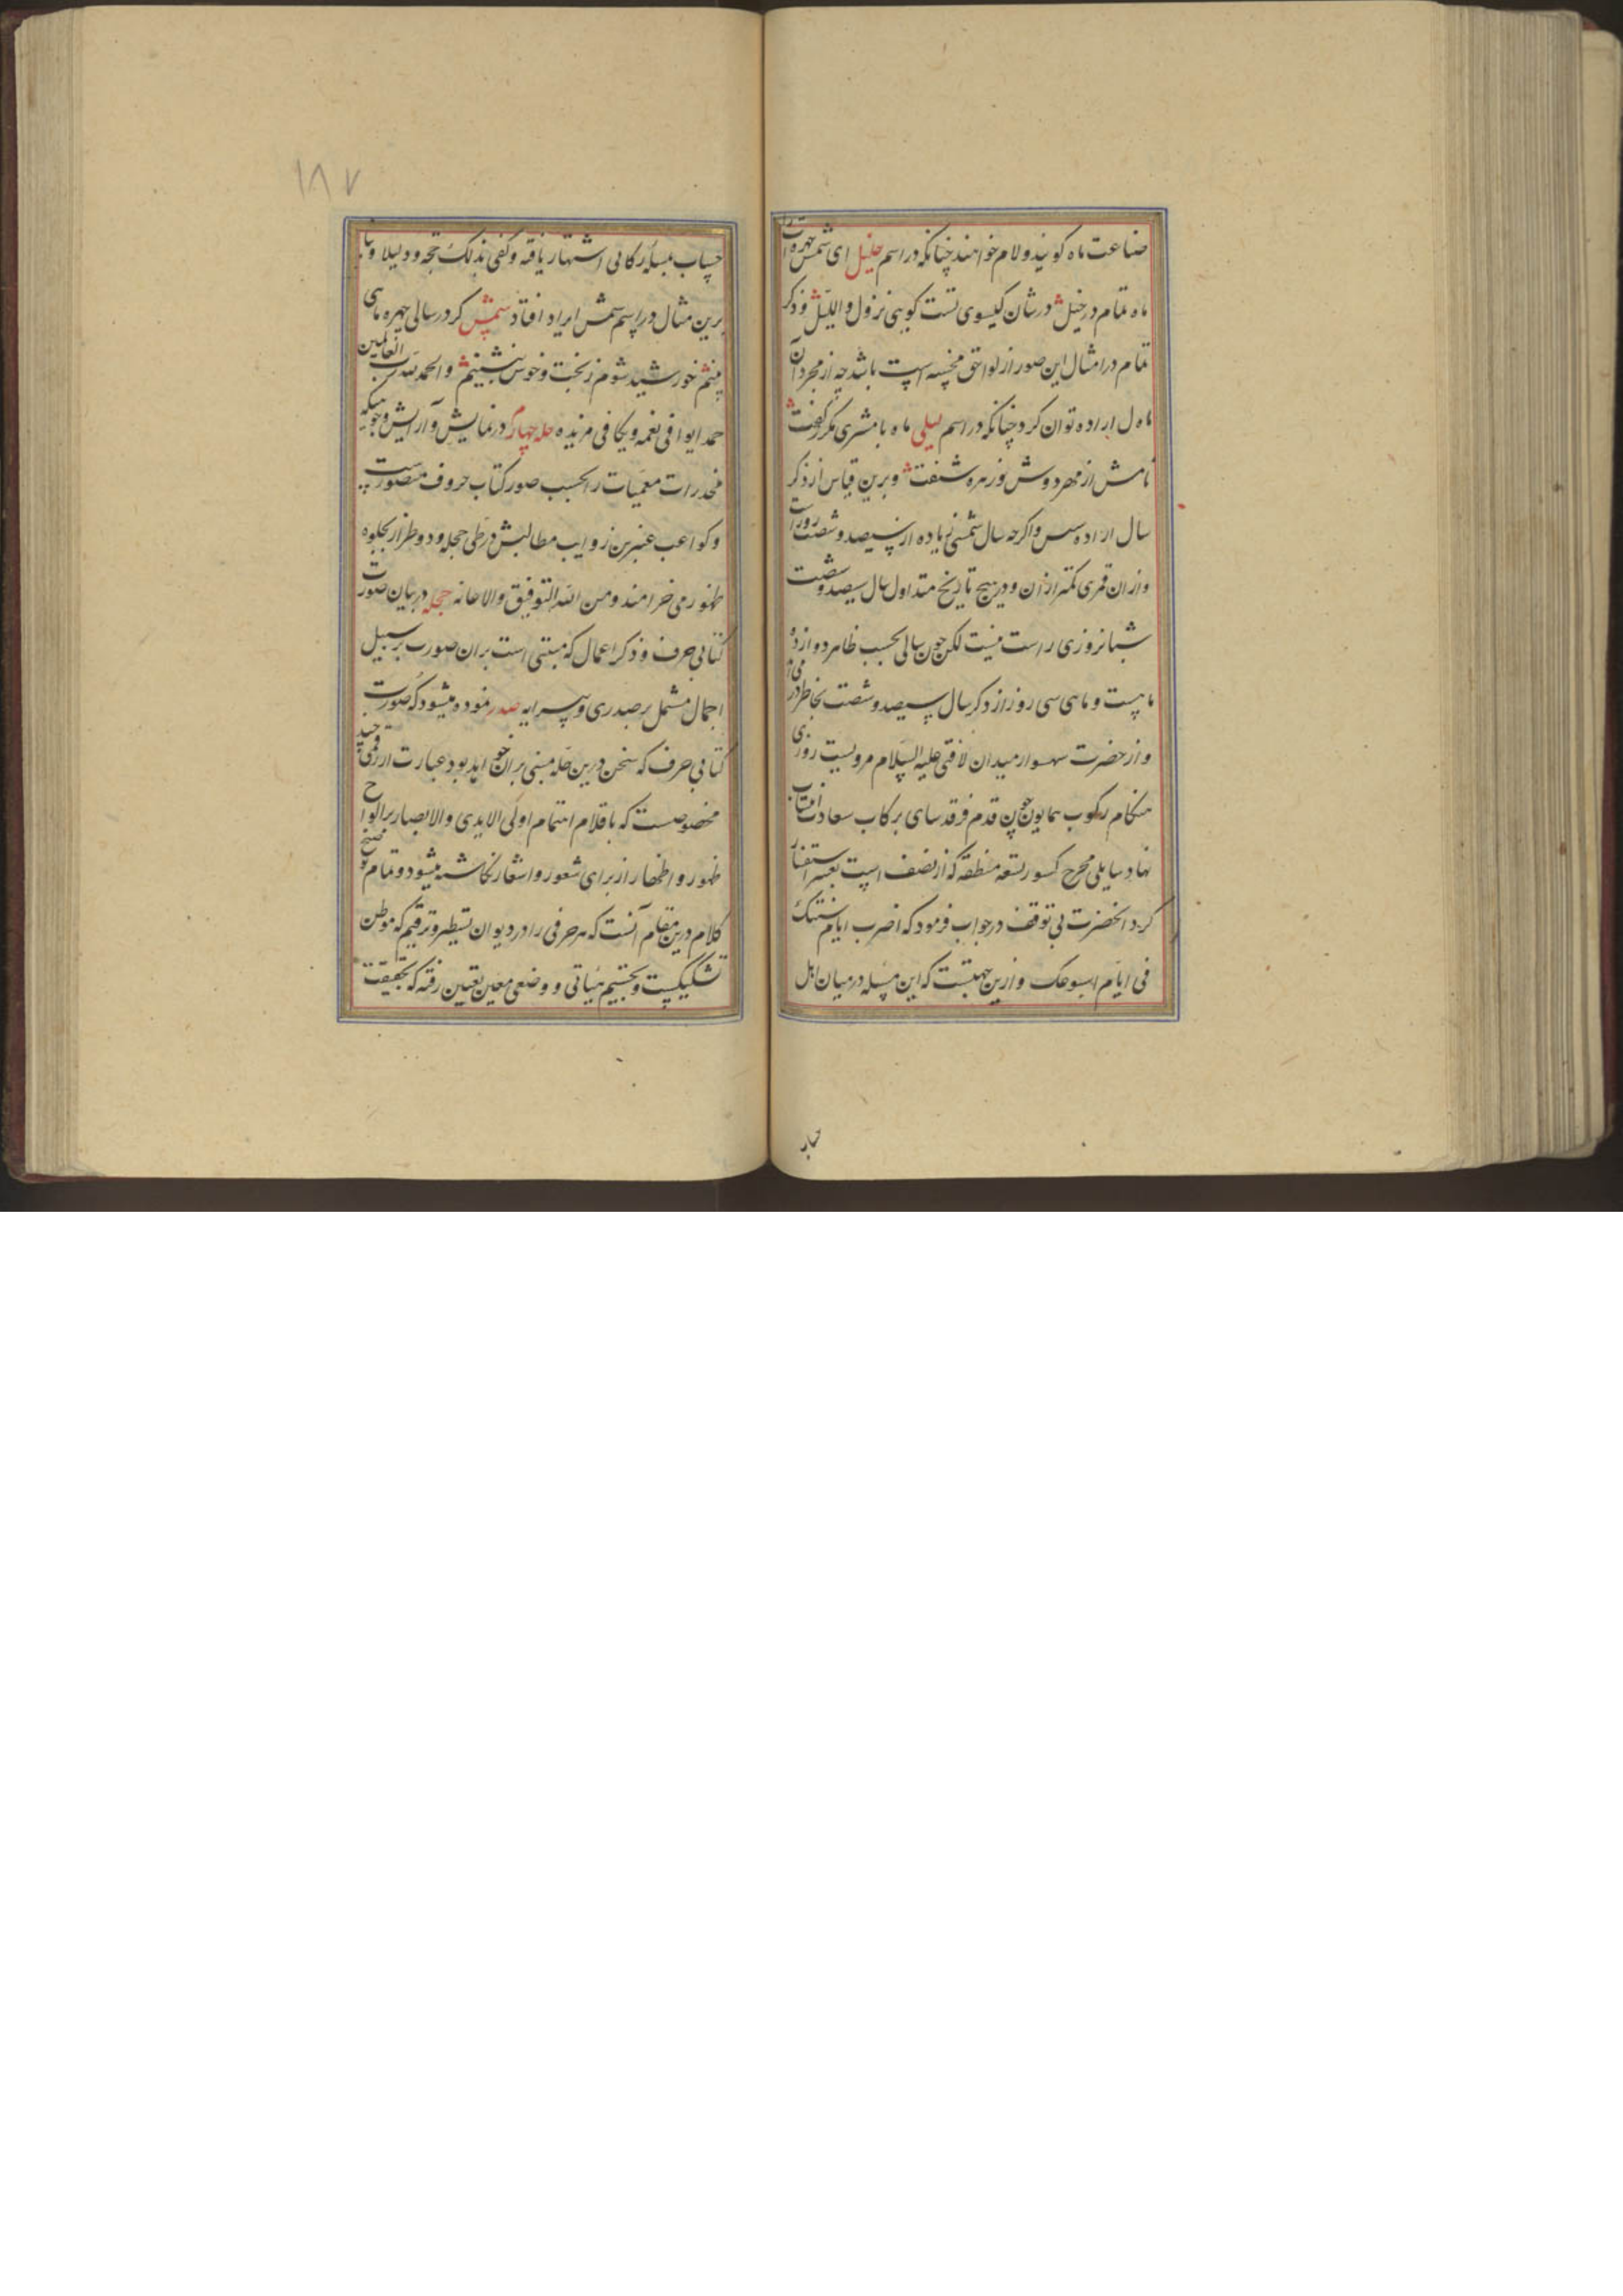 صناعت ماه کویند و لام خواهند چنانکه در اسم جلیل ای شمس چهره ات را
ماه تمام در خیل در شان کیسوی تست کویی نزول واللیل و ذکر
تمام در امثال این صور از لواحق محسنه است باشد چه از مجرد آن
ماه ل اراده توان کرد چنانکه در اسم لیلی ماه با مشتری مکرر گفت
نامش از مهر دوش و زهره شنفت و برین قیاس از ذکر
سال اراده سس و اگرچه سال شمسی زیاده از سیصد و شصت روز است
و از ان قمری کمتر از ان و در هیچ تاریخ متداول سال سیصد و شصت
شبانروزی راست نیست لکن چون سالی بحسب ظاهر دوازده
ماهست و ماهی سی روز از ذکر سال سیصد و شصت بخاطر در می آید
و از حضرت شهسوار میدان لافتی علیه السلام مرویست روزی
هنکام رکوب همایون چون قدم فرقد سای برکاب سعادت انتساب
نهاد سایلی مخرج کسور تسعه منطقه که از نصف است بعشر استفسار
کرد انحضرت بی توقف در جواب فرمود که اضرب ایام سنتک
فی ایام اسبوعک و ازین جهتست که این مسله در میان اهل
حساب
١٨٧
حساب بمسله رکابی اشتهار یافته و کفی بذلک حجة و دلیلا و بنا
برین مثال در اسم شمس ایراد افتاد شمس کرد رسالی چهره ماهی
بینم خورشید شوم ز بخت و خوش بنشینم والحمد لله رب العالمین
حمدا یوافی نعمه و یکافی مزیده حله چهارم در نمایش و آرایش وجوهیکه
مخدرات معمیات را بحسب صور کتاب حروف متصورست
و کواعب عنبرین ذوایب مطالبش در طی حجله و دو طراز بجلوه
ظهور می خرامند و من الله التوفیق والاعانه حجله در بیان صورت
کتابی حرف و ذکر اعمال که مبتنی است بران صورت بر سبیل
اجمال مشتمل بر صدری و پیرایه صدر نموده میشود که صورت
کتابی حرف که سخن درین حله مبنی بران خواهد بود عبارت از رقمی چند
مخصوصست که باقلام اهتمام اولی الایدی والابصار بر الواح
ظهور و اظهار از برای شعور و اشعار نکاشته میشود و تمام توضیح
کلام درین مقام آنست که هر حرفی را در دیوان تسطیر و ترقیم که موطن
تشکیلست و تجسیم هیاتی و وضعی معین تعیین رفته که بحقیقت